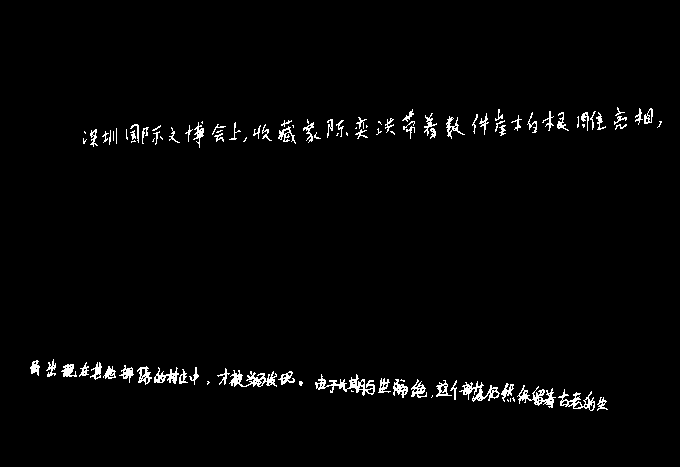 深圳国际文博会上,收藏家陈奕洪带着数件崖柏根雕亮相,
出现在其他部落的村庄中,才被当局发现。由于长期与世隔绝,这个部落仍然保留着古老的生